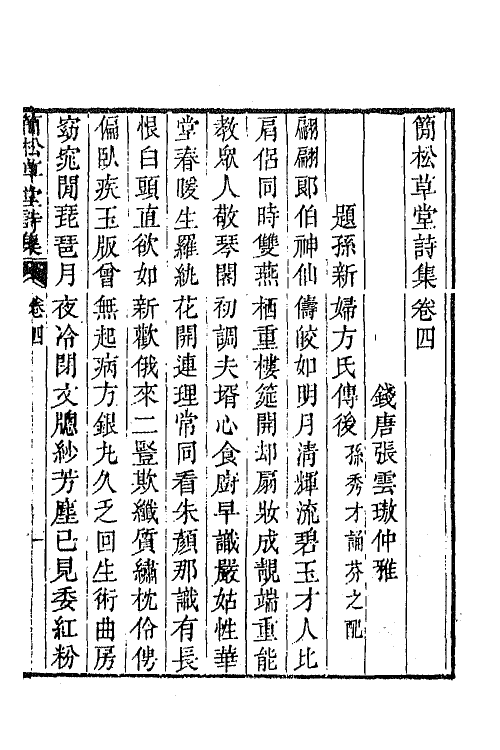 簡松草堂詩集卷四
錢唐張雲璈仲雅
題孫新婦方氏傳後孫秀才誦芬之配
翩翩郎伯神仙儔皎如明月淸輝流碧玉才人比
肩侶同時雙燕栖重樓筵開却扇妝成靚端重能
敎衆人敬琴閑初調夫壻心食廚早識嚴姑性華
堂春暖生羅紈花開連理常同看朱顏那識有長
恨白頭直欲如新歡俄來二豎欺纖質繡枕伶俜
偏臥疾玉版曾無起病方銀丸久乏回生術曲房
窈窕閒琵琶月夜冷閉文牕紗芳塵已見委紅粉
簡松草堂詩集
卷四
一